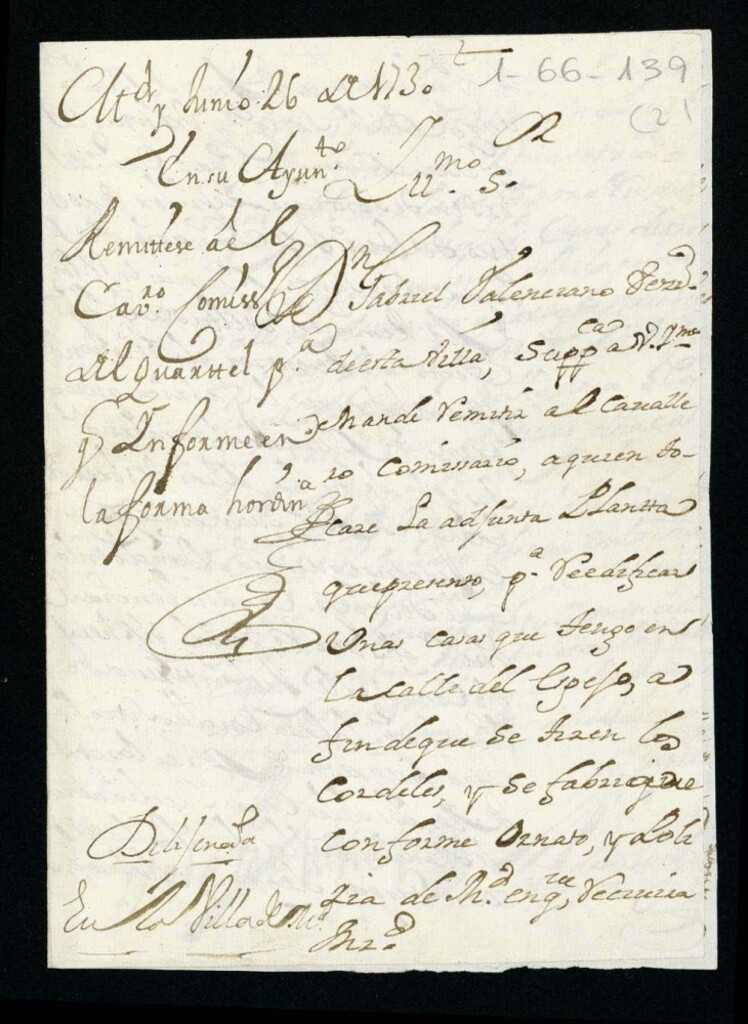 1-66-139
(2)
M.d y Junio 26 de 1730
En su Ayun.to
Remittese al
Cav.ro Comiss.o
del Quarttel p.a
q.e Informe en
la forma hordin.a
Yll.mo S.or
D.n Gabriel Valenciano Vezº
de esta Villa, Supp.ca a V. Y.ma
mande remitir al Cavalle
ro Comissario, a quien to-
care la adjunta Plantta
que presento, p.a reedificar
Unas casas que tengo en
la calle del Espejo, a
fin de que se tiren los
Cordeles, y se fabrique
conforme Ornato, y Poli
zia de M.d en q.e recivira
Mrz.d
En la Villa de M.d